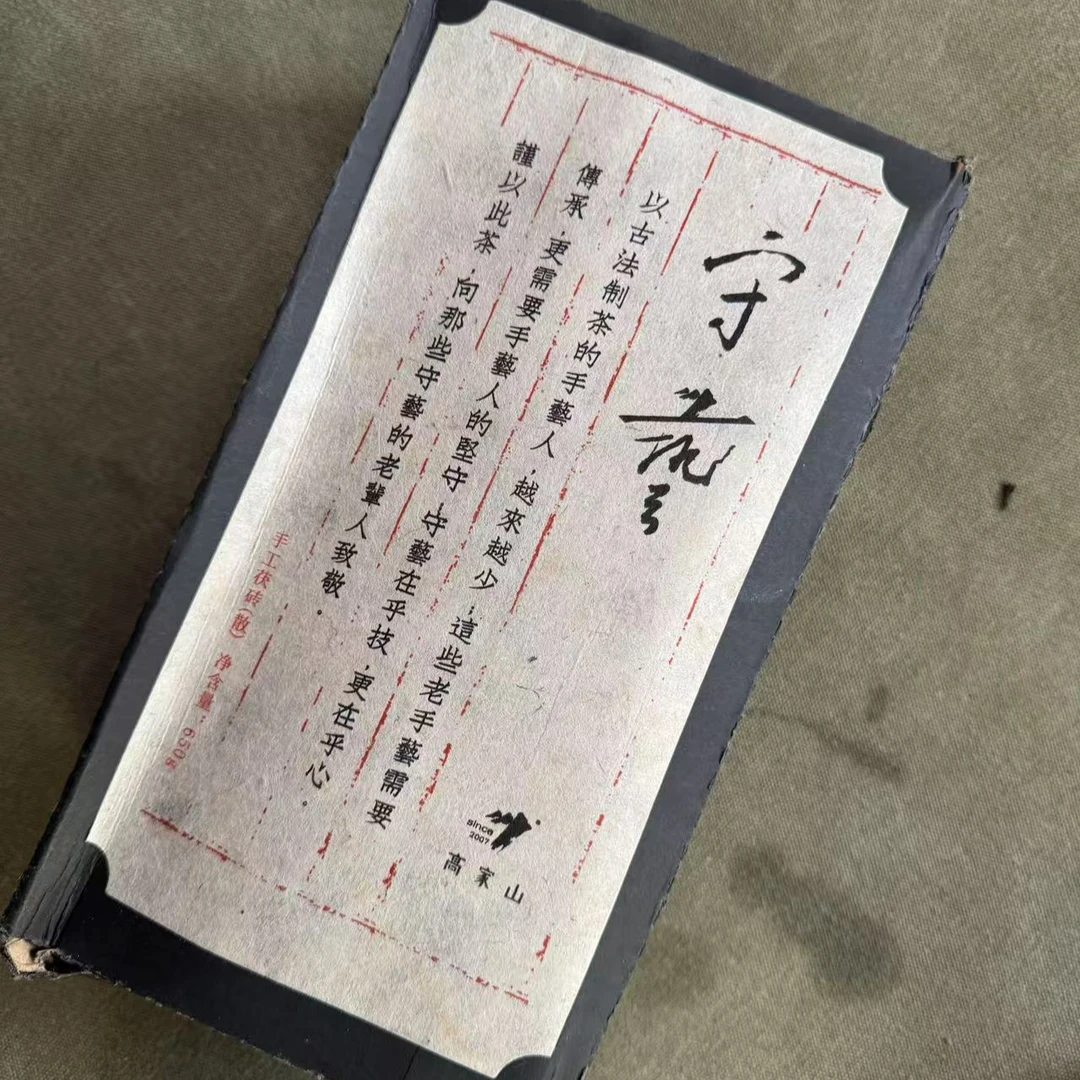 守藝
以古法制茶的手藝人，越來越少，這些老手藝需要
傳承，更需要手藝人的堅守，守藝在乎技，更在乎心。
謹以此茶，向那些守藝的老輩人致敬。
手工茯砖（散） 净含量：650g
since
2007
高家山